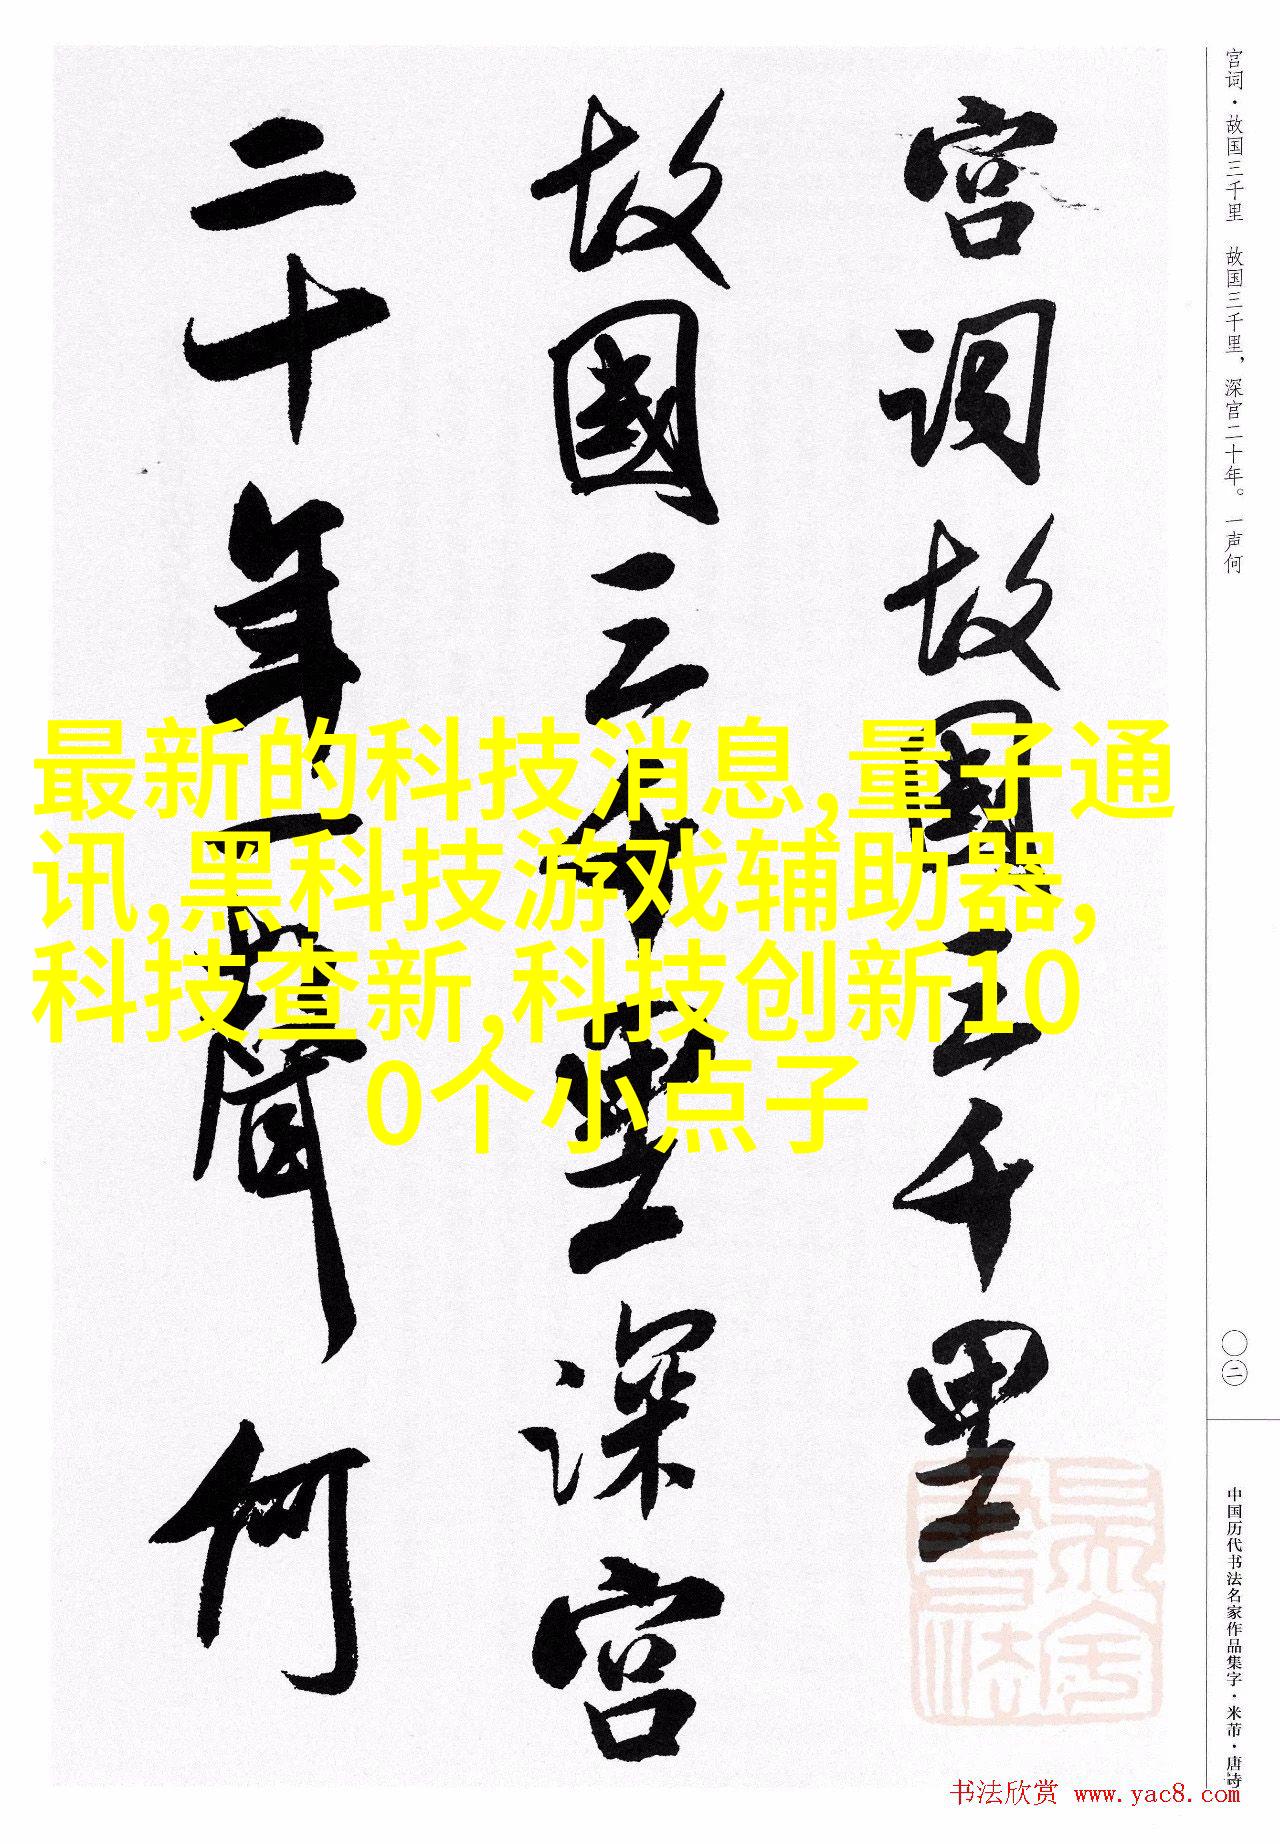 宫词·故国三千里　故国三千里，深宫二十年。一声何
宫词故国三千里
故國三千里深宫
二十年一聲何
最新的科技消息,量子通
讯,黑科技游戏辅助器,
科技查新,科技创新10
0个小点子
〇二
中国历代书法名家作品集字·米芾·唐诗
书法欣赏 www.yac8.com